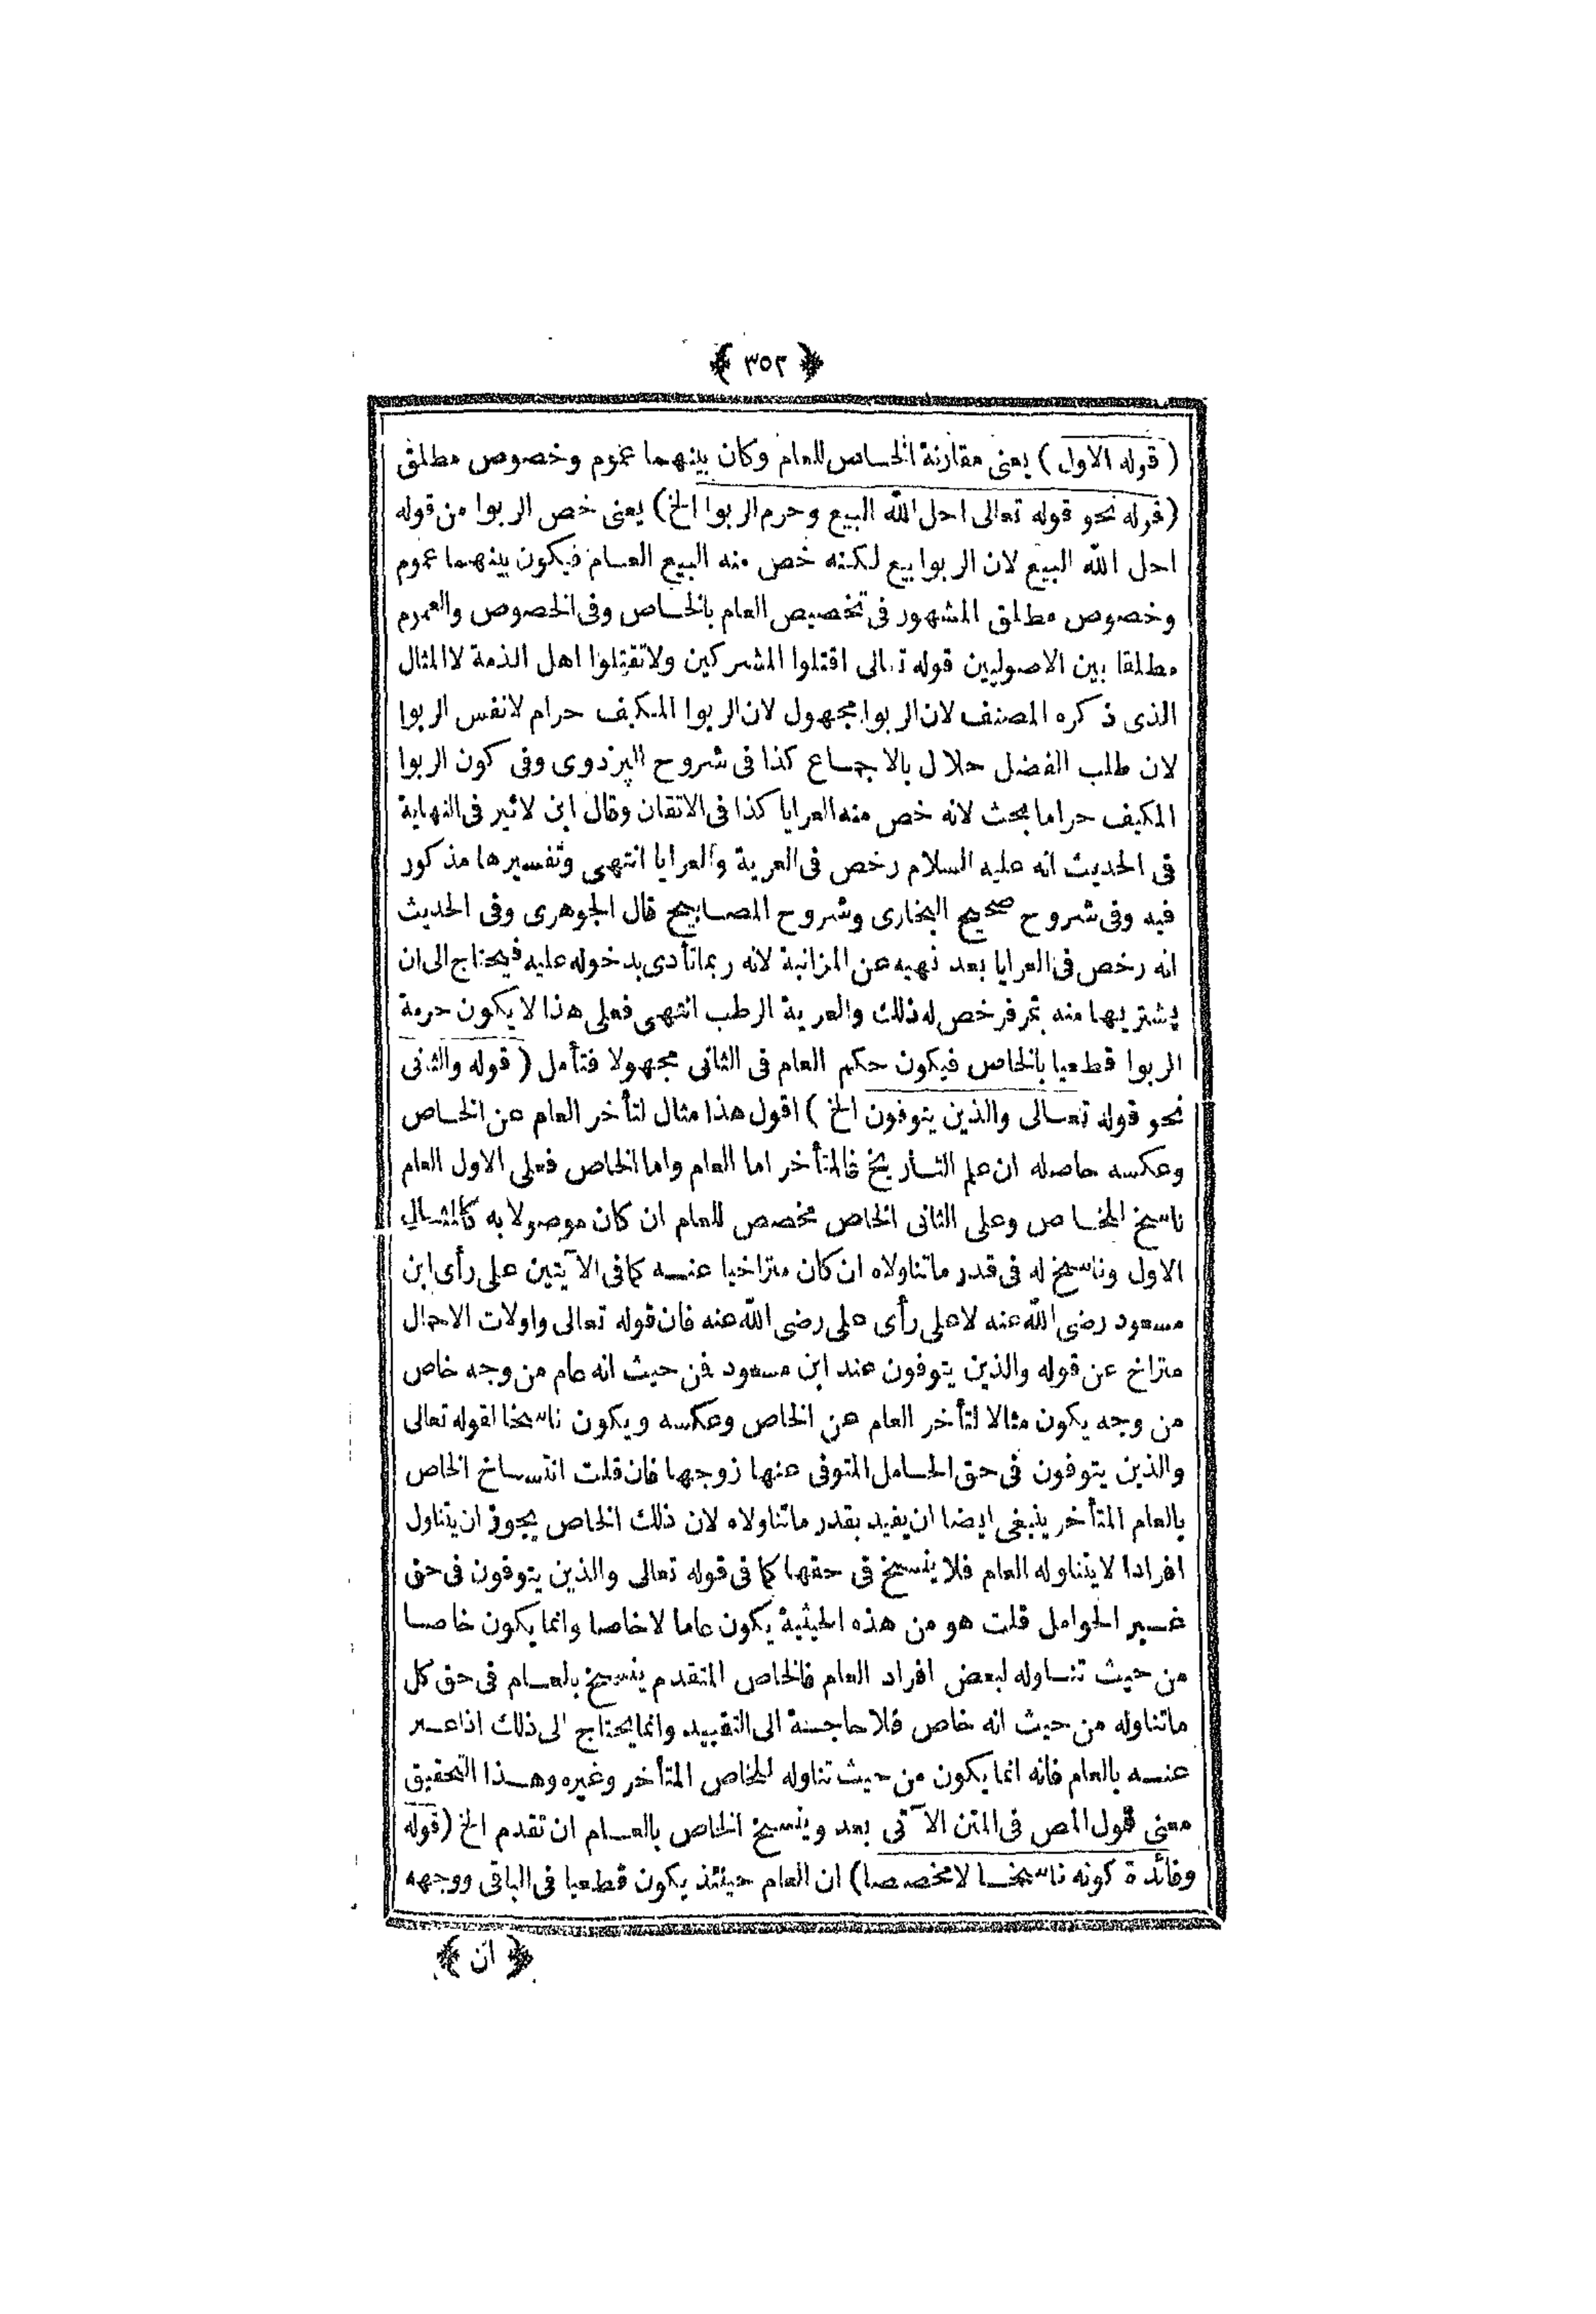 ﴿ ٣٥٢ ﴾
( قوله الاول ) يعنى مقارنة الخاص للعام وكان بينهما عموم وخصوص مطلق
(قوله نحو قوله تعالى احل الله البيع وحرم الربوا الخ) يعنى خص الربوا من قوله
احل الله البيع لان الربوا بيع لكنه خص منه البيع العام فيكون بينهما عموم
وخصوص مطلق المشهور فى تخصيص العام بالخاص وفى الخصوص والعموم
مطلقا بين الاصوليين قوله تعالى اقتلوا المشركين ولا تقتلوا اهل الذمة لا المثال
الذى ذكره المصنف لان الربوا مجهول لان الربوا المكيف حرام لا نفس الربوا
لان طلب الفضل حلال بالاجماع كذا فى شروح البزدوى وفى كون الربوا
المكيف حراما بحث لانه خص منه العرايا كذا فى الاتقان وقال ابن لاثير فى النهاية
فى الحديث انه عليه السلام رخص فى العرية والعرايا انتهى وتفسيرها مذكور
فيه وفى شروح صحيح البخارى وشروح المصابيح قال الجوهرى وفى الحديث
انه رخص فى العرايا بعد نهيه عن المزانبة لانه ربما تأدى بدخوله عليه فيحتاج الى ان
يشتريها منه بتمر فرخص له ذلك والعرية الرطب انتهى فعلى هذا لا يكون حرمة
الربوا قطعيا بالخاص فيكون حكم العام فى الثانى مجهولا فتأمل ( قوله والثانى
نحو قوله تعالى والذين يتوفون الخ ) اقول هذا مثال لتأخر العام عن الخاص
وعكسه حاصله ان علم التاريخ فالمتأخر اما العام واما الخاص فعلى الاول العام
ناسخ للخاص وعلى الثانى الخاص مخصص للعام ان كان موصولا به كالمثال
الاول وناسخ له فى قدر ماتناولاه ان كان متراخيا عنه كما فى الآيتين على رأى ابن
مسعود رضى الله عنه لا على رأى على رضى الله عنه فان قوله تعالى واولات الاحمال
متراخ عن قوله والذين يتوفون عند ابن مسعود فمن حيث انه عام من وجه خاص
من وجه يكون مثالا لتأخر العام عن الخاص وعكسه ويكون ناسخا لقوله تعالى
والذين يتوفون فى حق الحامل المتوفى عنها زوجها فان قلت انتساخ الخاص
بالعام المتأخر ينبغى ايضا ان يفيد بقدر ماتناولاه لان ذلك الخاص يجوز ان يتناول
افرادا لا يتناوله العام فلا ينسخ فى حقها كما فى قوله تعالى والذين يتوفون فى حق
غير الحوامل قلت هو من هذه الحيثية يكون عاما لا خاصا وانما يكون خاصا
من حيث تناوله لبعض افراد العام فالخاص المتقدم ينسخ بالعام فى حق كل
ماتناوله من حيث انه خاص فلا حاجة الى التقييد وانما يحتاج الى ذلك اذا عبر
عنه بالعام فانه انما يكون من حيث تناوله للخاص المتأخر وغيره وهذا التحقيق
معنى قول المص فى المتن الآتى بعد وينسخ الخاص بالعام ان تقدم الخ (قوله
وفائدة كونه ناسخا لا مخصصا) ان العام حينئذ يكون قطعيا فى الباقى ووجهه
﴿ ان ﴾